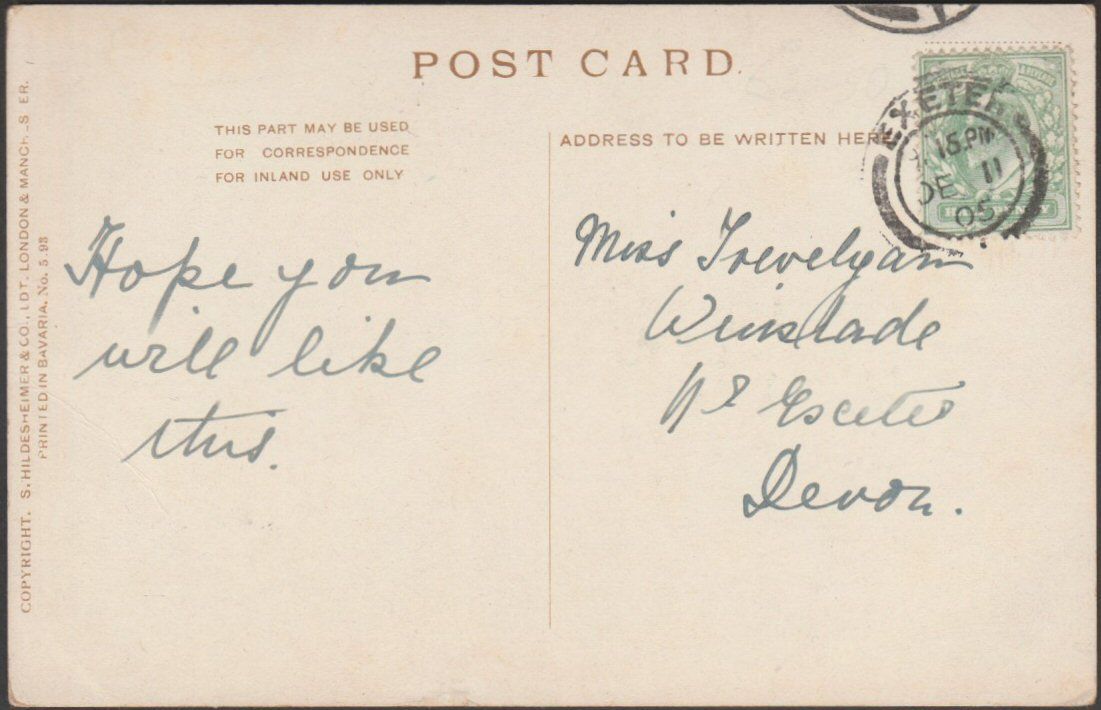 POST CARD.
THIS PART MAY BE USED
FOR CORRESPONDENCE
FOR INLAND USE ONLY
ADDRESS TO BE WRITTEN HERE
EXETER
15.PM
DE 11
05
Hope you
will like
this.
Miss Trevelyan
Winslade
Nr Exeter
Devon.
COPYRIGHT. S. HILDESHEIMER & CO., LDT. LONDON & MANCHESTER.
PRINTED IN BAVARIA. No. 5.98